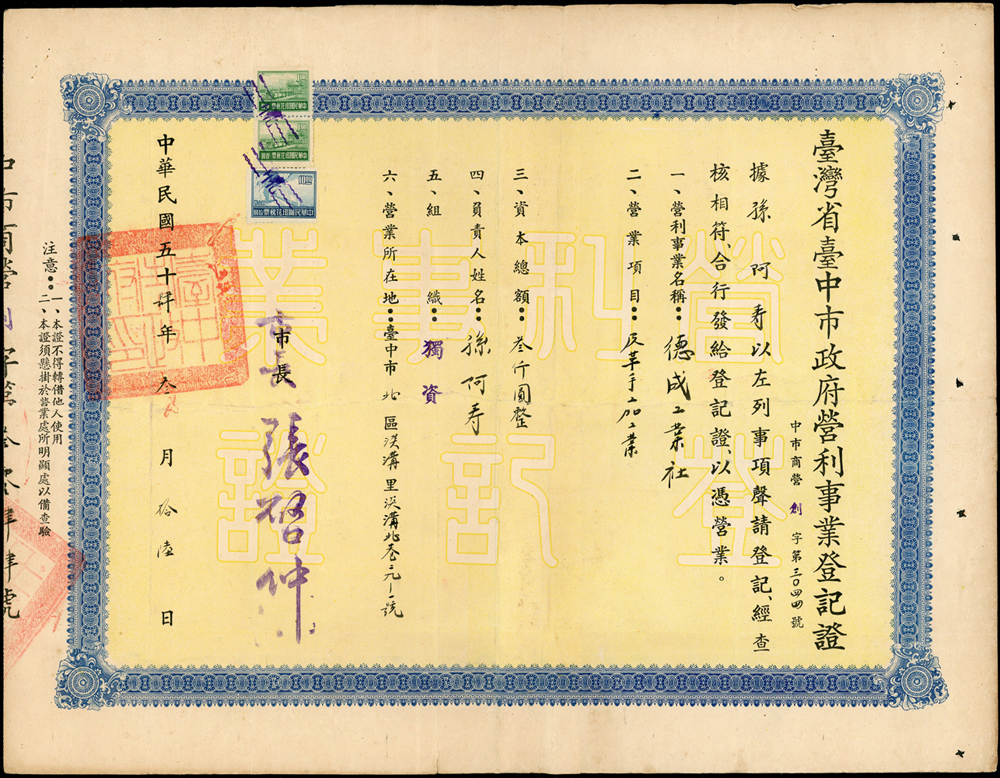 臺灣省臺中市政府營利事業登記證
中市商營創字第三〇四四號
據孫阿寿以左列事項聲請登記、經查
核相符、合行發給登記證、以憑營業。
一、營利事業名稱：德成工業社
二、營業項目：皮革手工加工業
三、資本總額：叁仟圓整
四、負責人姓名：孫阿寿
五、組織：獨資
六、營業所在地：臺中市北區淡溝里淡溝北巷元一號
市長 張啓仲
中華民國五十年叁月拾陸日
注意：一、本證不得轉借他人使用
二、本證須懸掛於營業處所明顯處以備查驗
中市商營創字第叁零肆肆號
營利事業
登記證